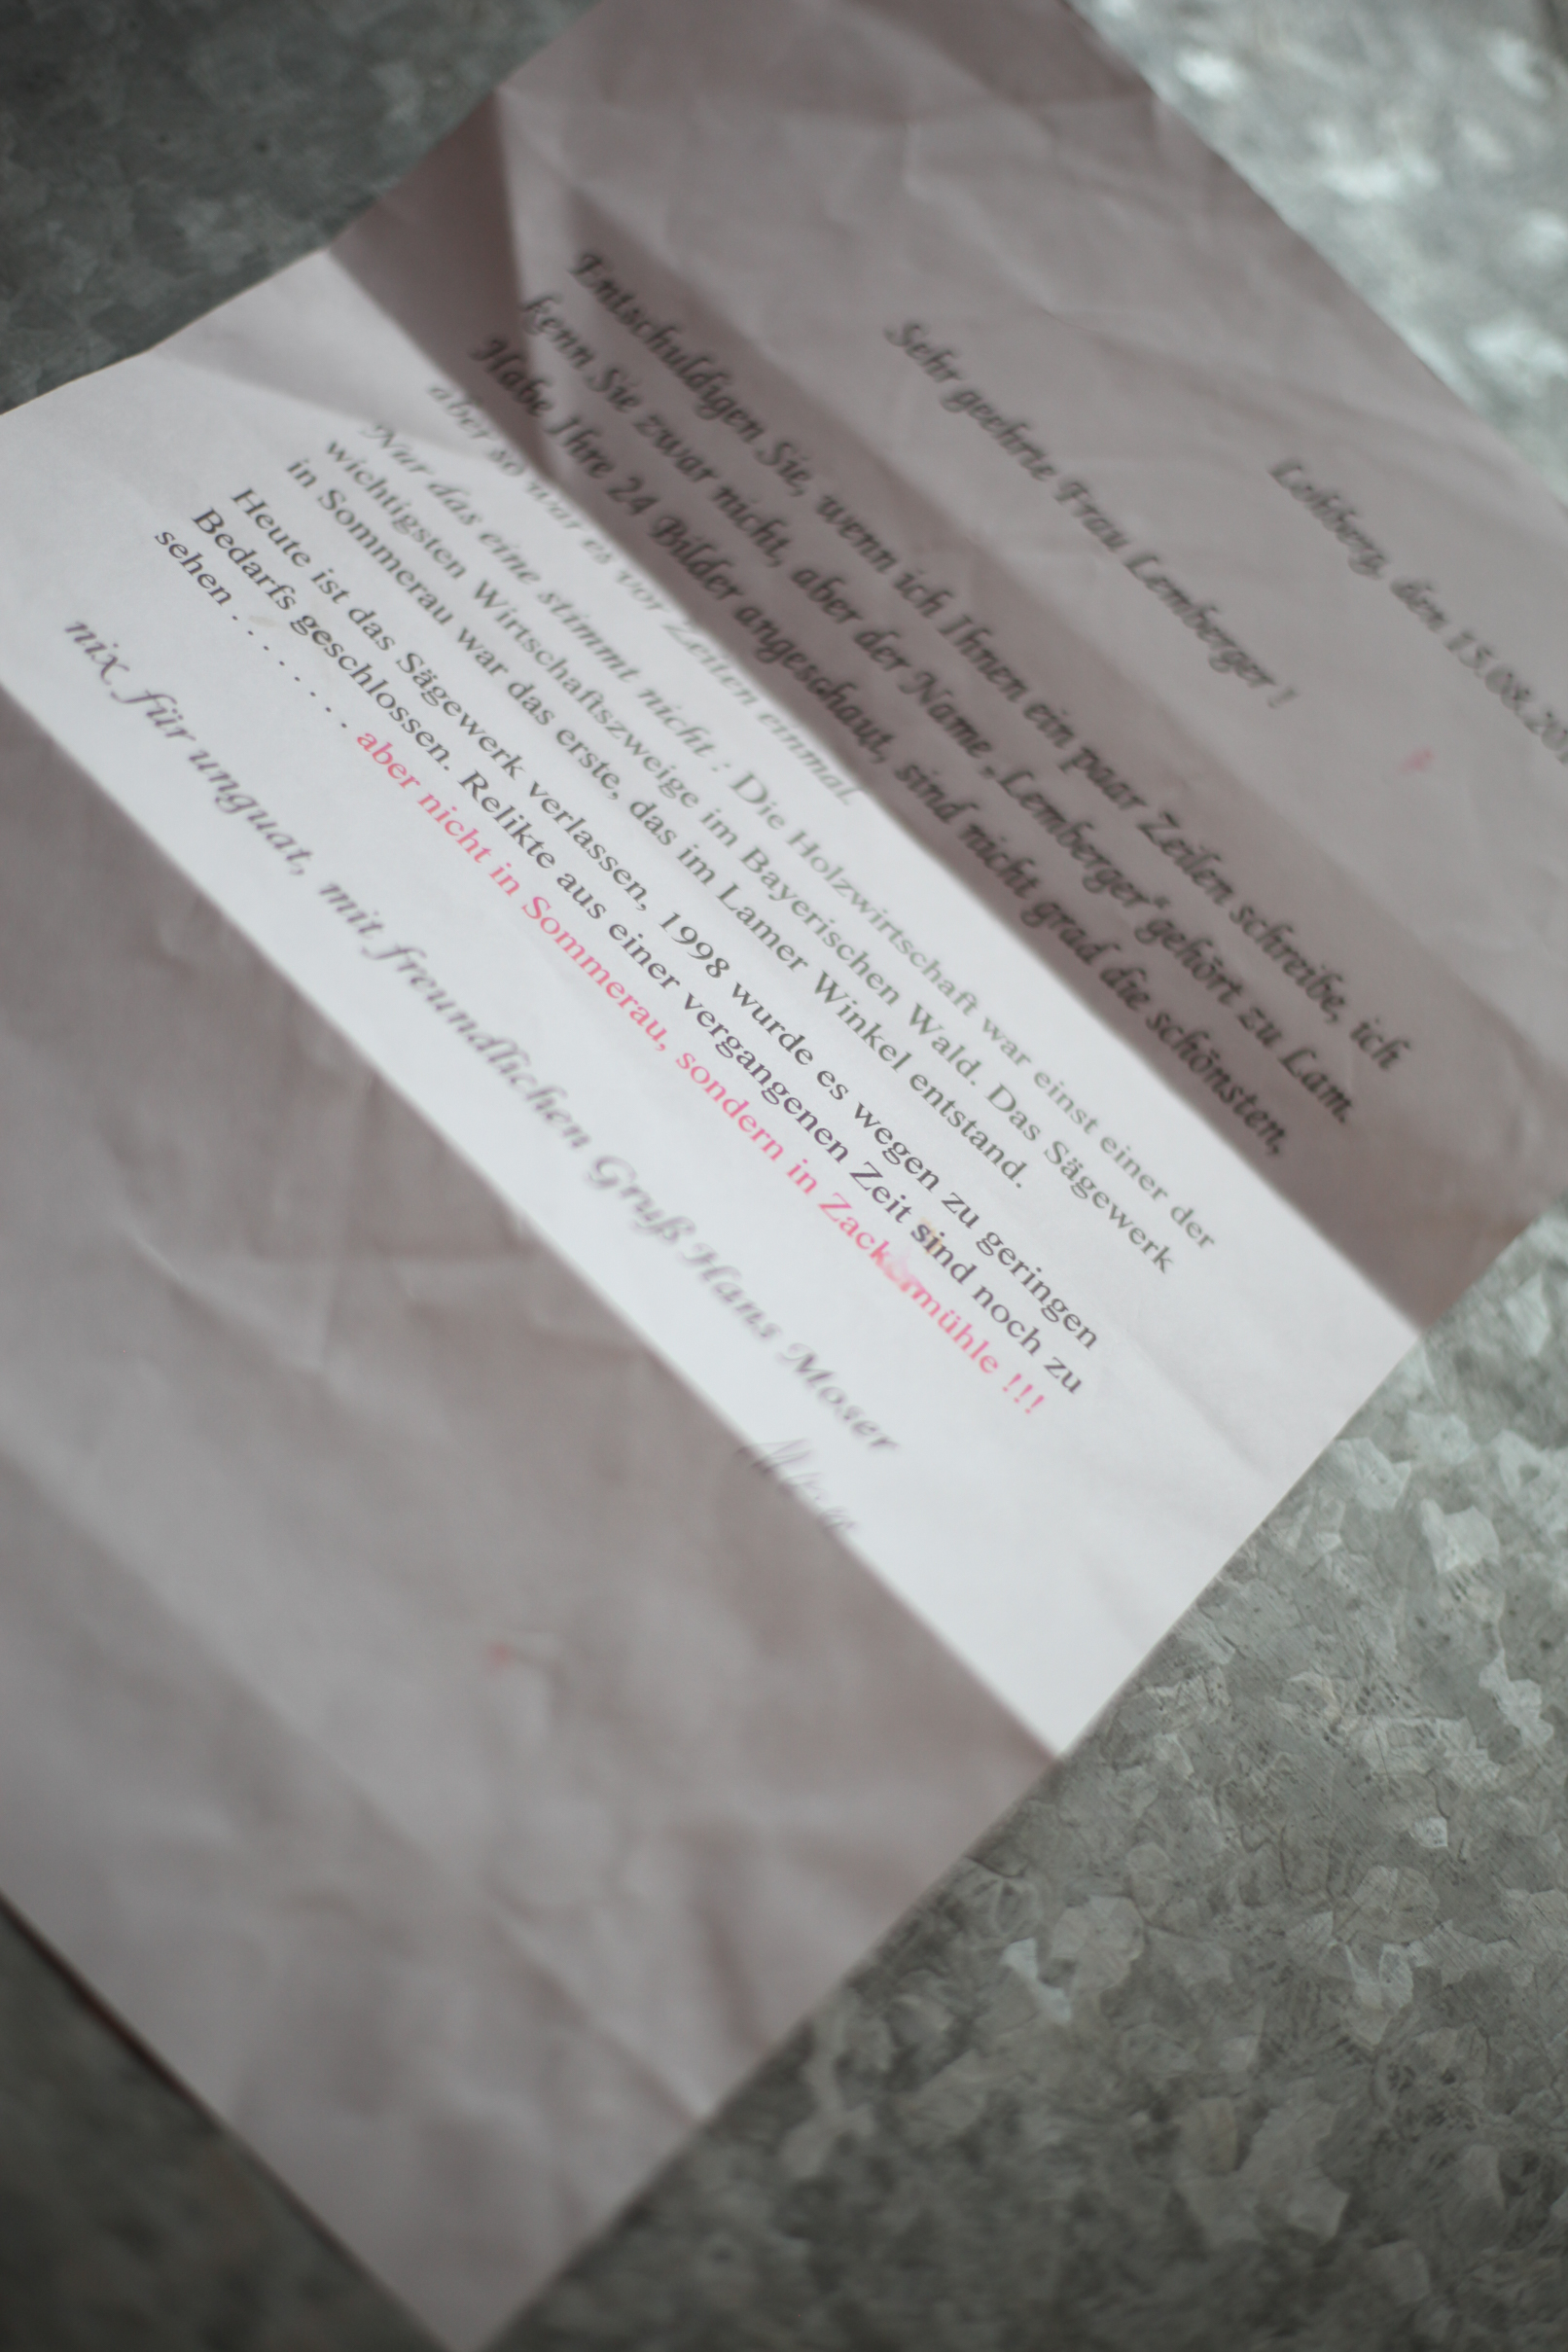 Lohberg, den 15.08.20
Sehr geehrte Frau Lemberger !
Entschuldigen Sie, wenn ich Ihnen ein paar Zeilen schreibe, ich
kenn Sie zwar nicht, aber der Name „Lemberger“ gehört zu Lam.
Habe Ihre 24 Bilder angeschaut, sind nicht grad die schönsten,
aber so war es vor Zeiten einmal.
Nur das eine stimmt nicht : Die Holzwirtschaft war einst einer der
wichtigsten Wirtschaftszweige im Bayerischen Wald. Das Sägewerk
in Sommerau war das erste, das im Lamer Winkel entstand.
Heute ist das Sägewerk verlassen, 1998 wurde es wegen zu geringen
Bedarfs geschlossen. Relikte aus einer vergangenen Zeit sind noch zu
sehen . . . . . . . . aber nicht in Sommerau, sondern in Zackermühle !!!
nix für unguat, mit freundlichen Gruß Hans Moser